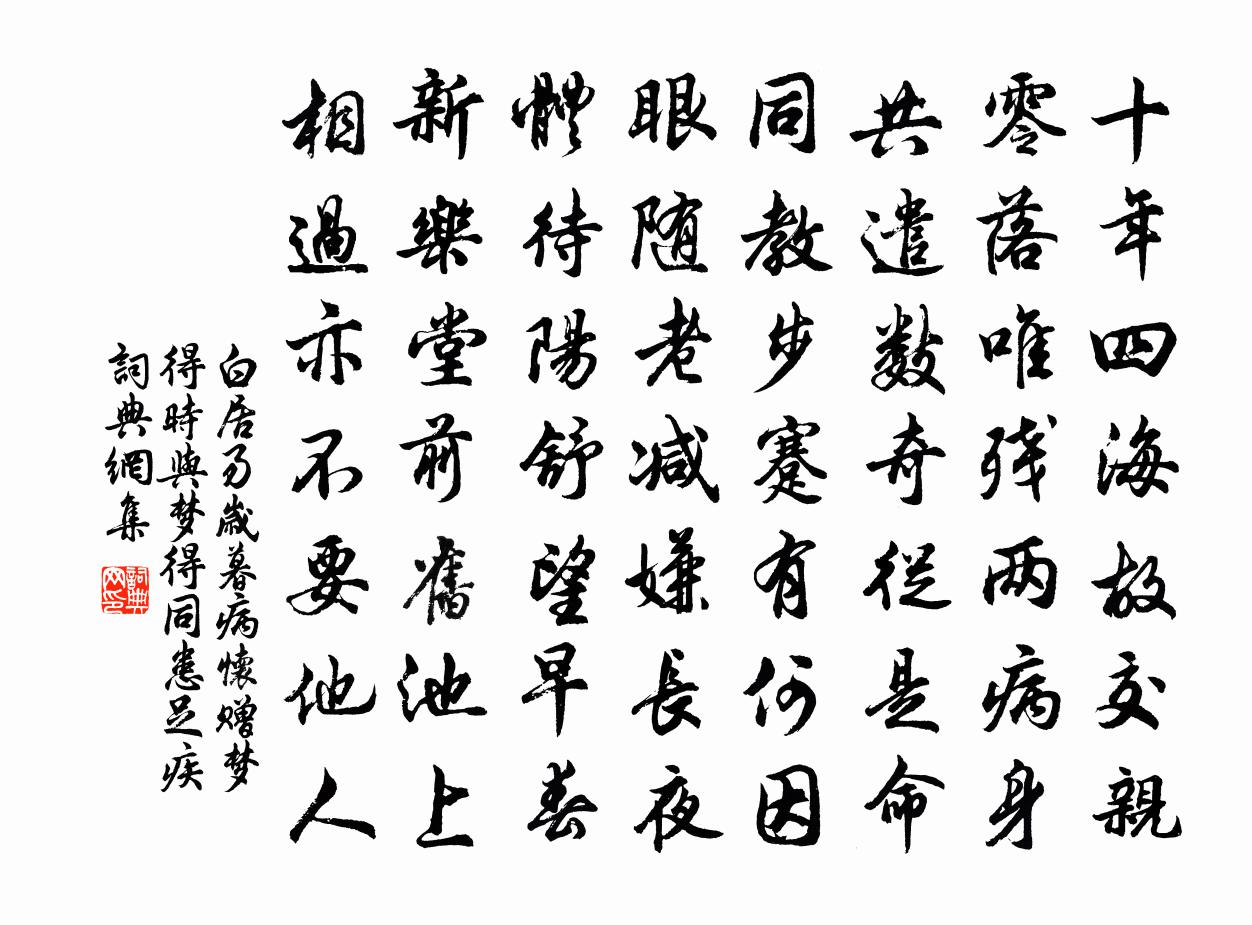 十年四海故交親
零落唯残两病身
共遣數奇從是命
同教步蹇有何因
眼随老减嫌長夜
體待陽舒望早春
新樂堂前舊池上
相過亦不要他人
白居易歲暮病懷赠梦
得時與梦得同患足疾
詞典網集
詞典
网印